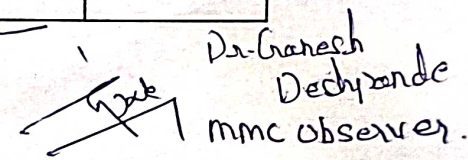 Dr. Ganesh
Deshpande
mmc observer.